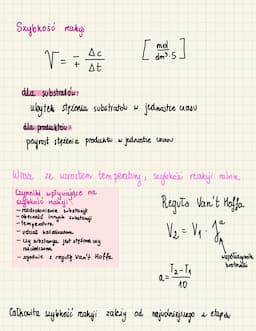 Szybkość reakcji
V = -/+ Δc/Δt [mol/dm³·s]
dla substratów:
ubytek stężenia substratów w jednostce czasu
dla produktów:
przyrost stężenia produktu w jednostce czasu
Wraz ze wzrostem temperatury, szybkość reakcji rośnie
Czynniki wpływające na
szybkość reakcji:
- rozdrobnienie substancji
- obecność innych substancji
- temperatura
- udział katalizatora
- czy substancja jest
- zgodnie z regułą Van't Hoffa
Reguła Van't Hoffa
V₂ = V₁ ·
współczynnik
a = T₂-T₁/10
Całkowita szybkość reakcji zależy od najwolniejszego z etapów